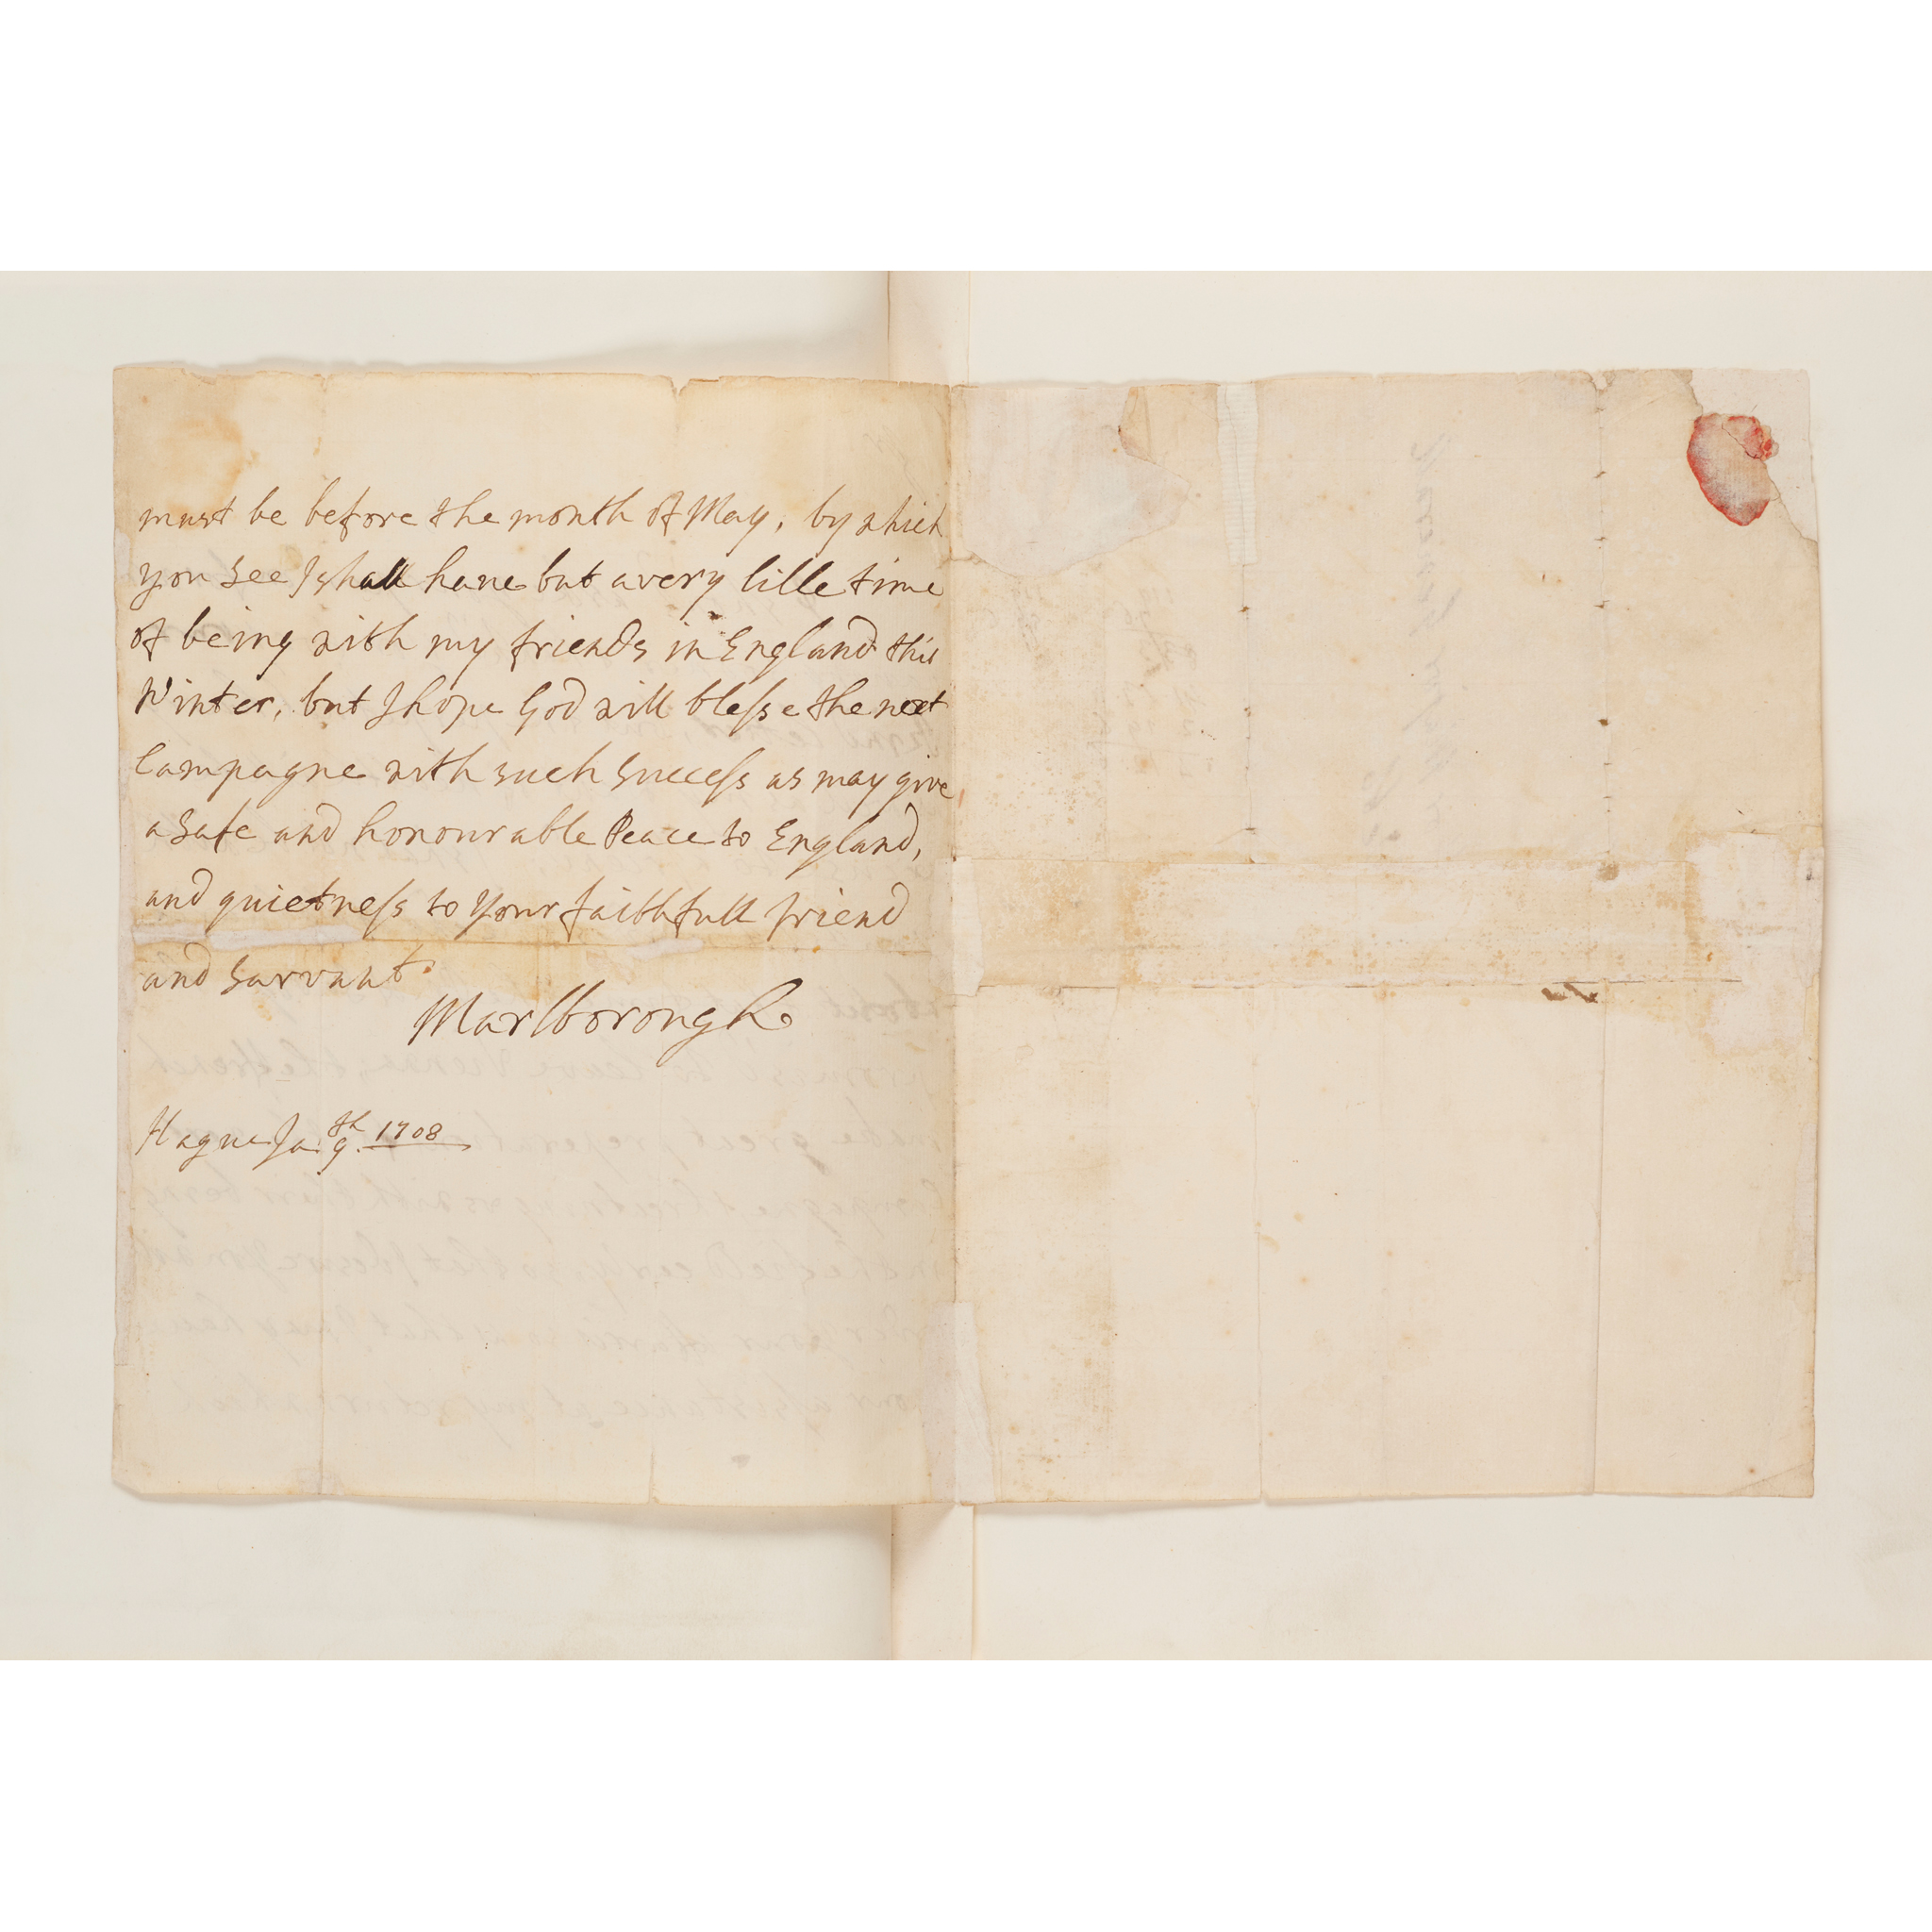 must be before the month of May, by which
you see I shall have but a very litle time
of being with my friends in England this
Winter, but I hope God will blesse the next
Campagne with such success as may give
a safe and honourable Peace to England,
and quietness to your faithfull friend
and sarvant
Marlborough
Hague Ja: 9th 1708